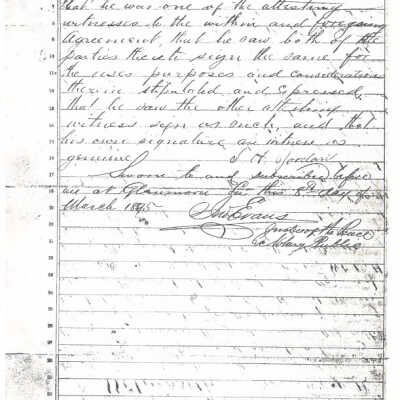 that he was one of the attesting
witnesses to the within and foregoing
Agreement, that he saw both of the
parties thereto sign the same for
the uses purposes and considerations
therein stipulated and expressed,
that he saw the other attesting
witness sign as such, and that
his own signature as witness is
genuine
Sworn to and subscribed before
me at Glenmore Ga this 8th day of
March 1895
Evans
Justice of the Peace
& Notary Public